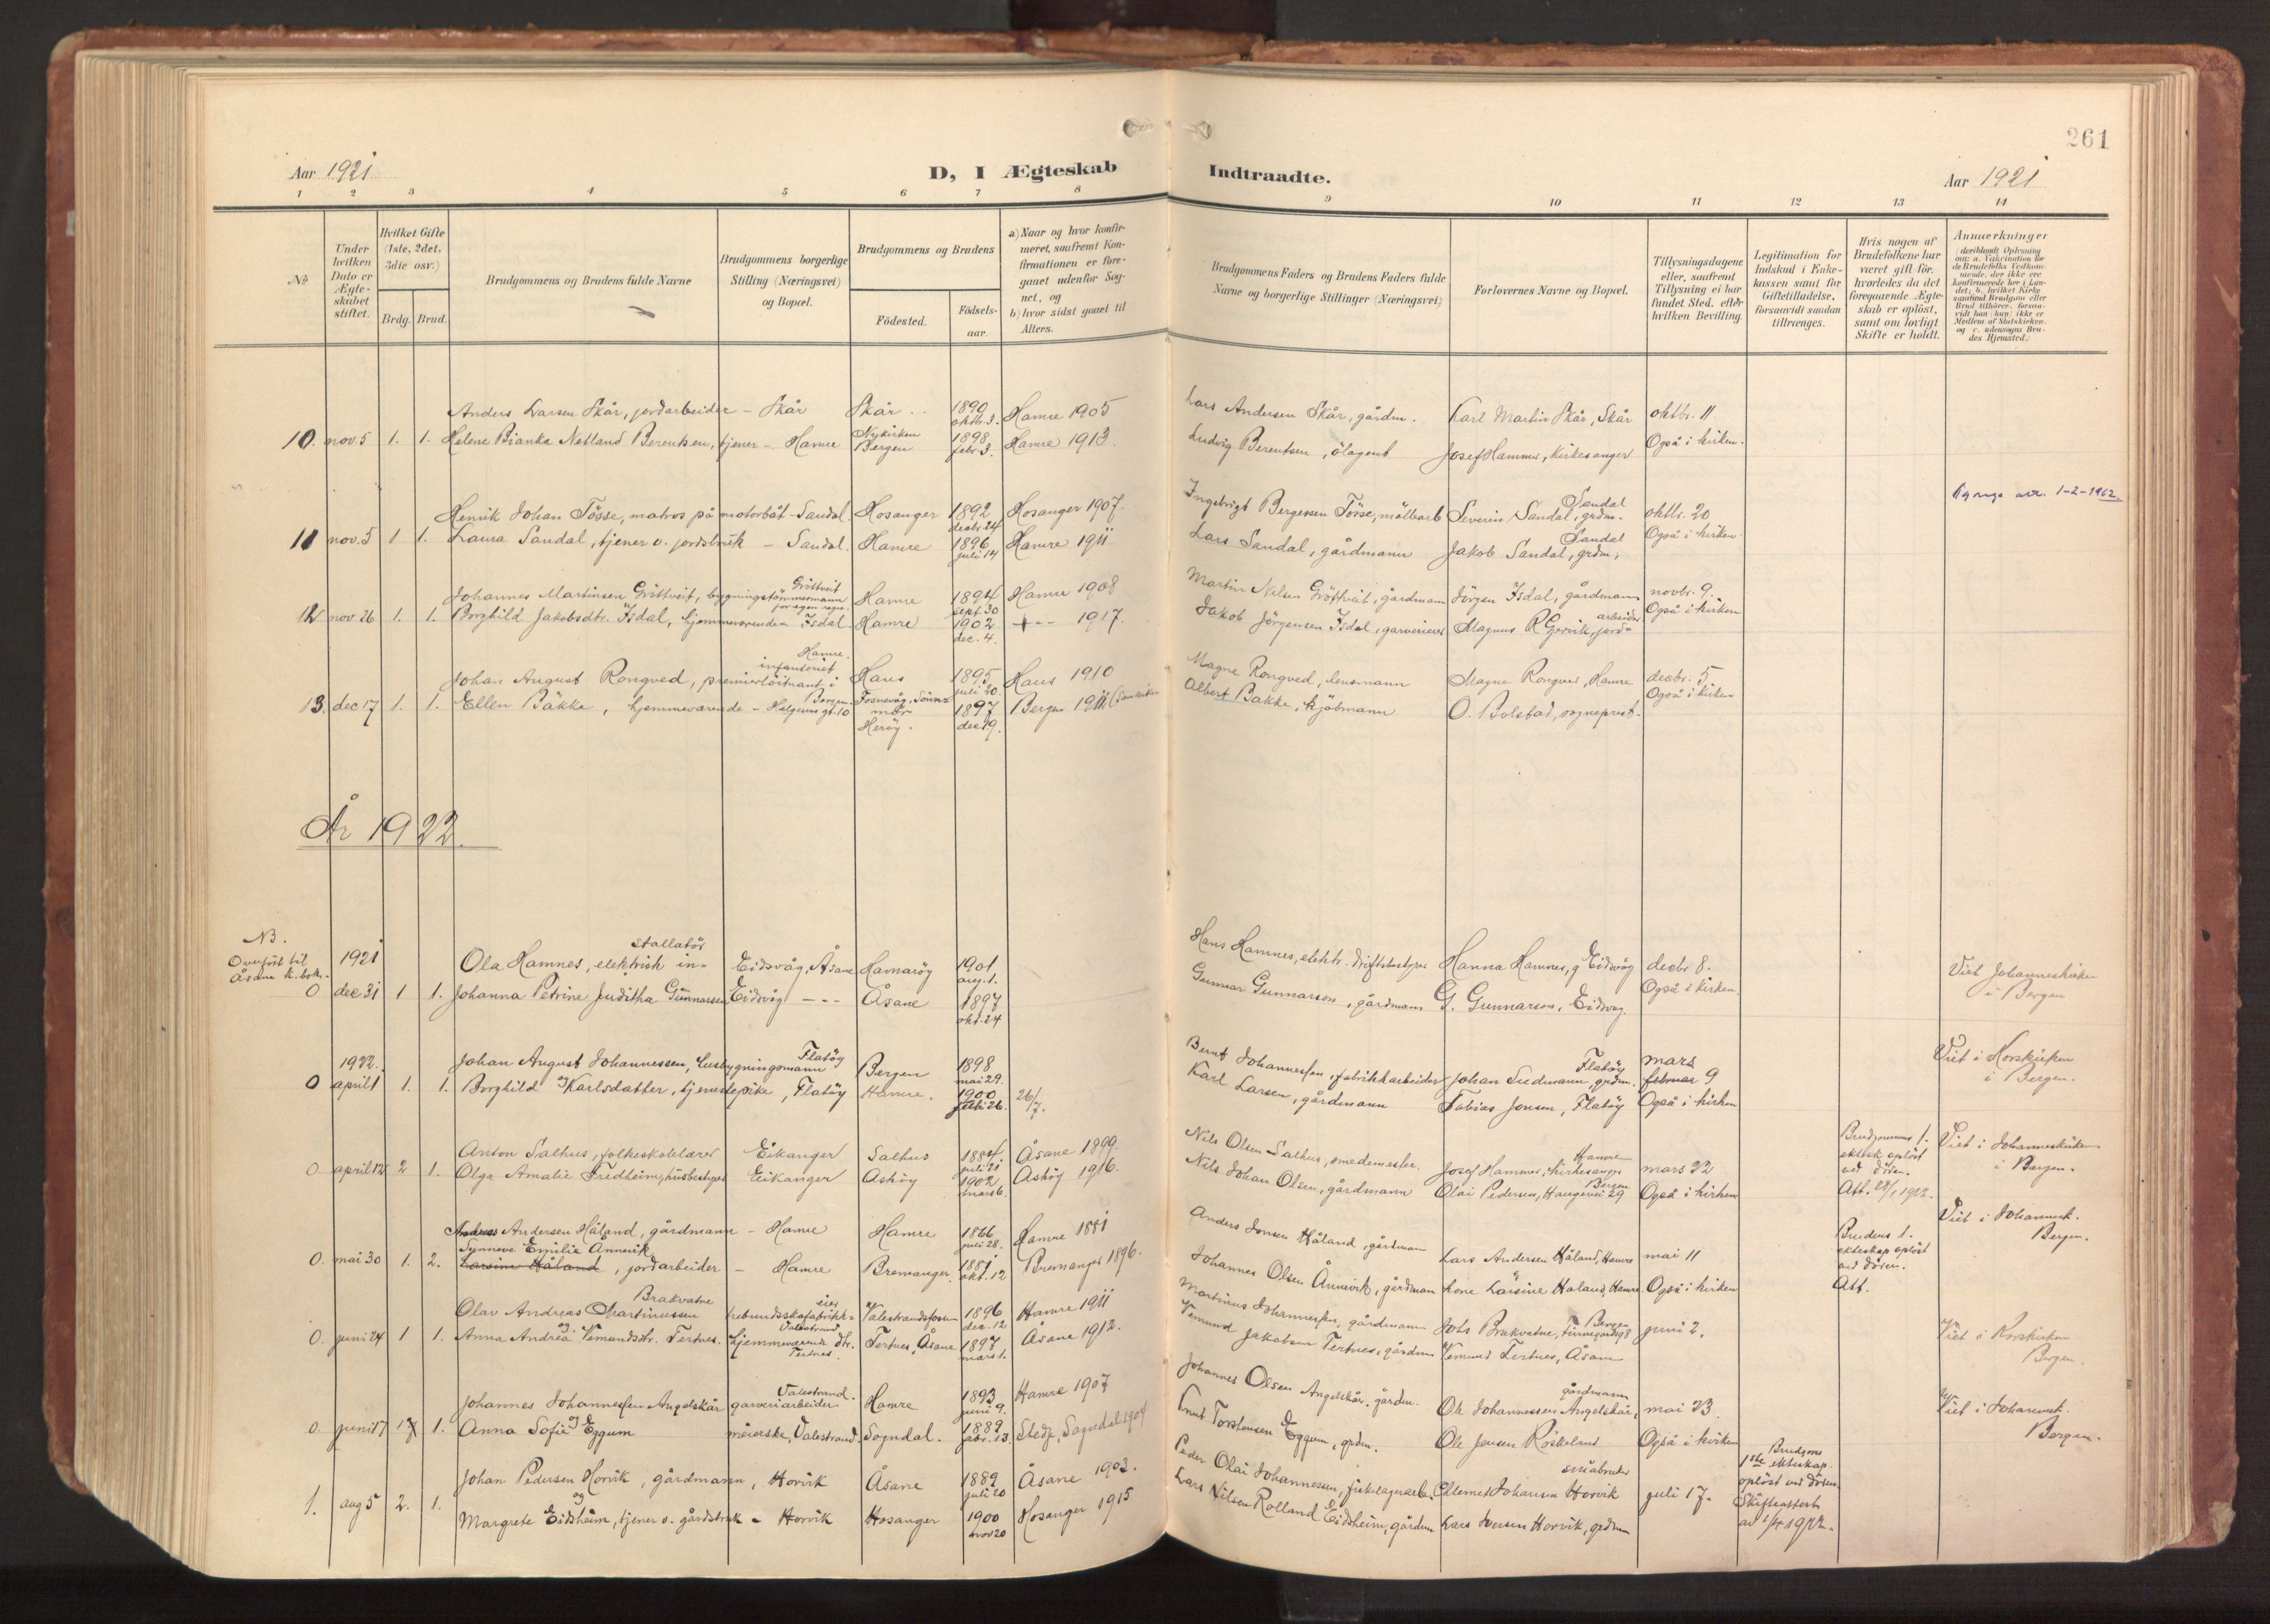 261
Aar 1921
D, I Ægteskab Indtraadte.
Aar 1921
1 2 3 4 5 6 7 8 9 10 11 12 13 14
No
Under hvilken Dato er Ægte-skabet stiftet.
Hvilket Gifte (1ste, 2det, 3die osv.)
Brdg. Brud.
Brudgommens og Brudens fulde Navne
Brudgommens borgerlige Stilling (Næringsvei) og Bopæl.
Brudgommens og Brudens
Fødested.
Fødsels-aar.
a) Naar og hvor konfir-meret, saafremt Kon-firmationen er fore-gaaet udenfor Sog-net, og
b) hvor sidst gaaet til Alters.
Brudgommens Faders og Brudens Faders fulde Navne og borgerlige Stillinger (Næringsvei)
Forlovernes Navne og Bopæl.
Tillysningsdagene eller, saafremt Tillysning ei har fundet Sted, efter hvilken Bevilling.
Legitimation for Indskud i Enke-kassen samt for Giftetilladelse, forsaavidt saadan tiltrænges.
Hvis nogen af Brudefolkene har været gift før, hvorledes da det foregaaende Ægte-skab er opløst, samt om lovligt Skifte er holdt.
Anmærkninger
Anders Larsen Skår, jordarbeider - Skår Skår 1890 oktbr. 3. Hamre 1905 Lars Andersen Skår, gårdm. Karl Martin Skår, Skår oktbr. 11
10. nov. 5 1. 1. Helene Bianka Netland Berentsen, tjener - Hamre Nykirken Bergen 1898 febr. 3. Hamre 1913. Ludvig Berentsen, ölagent Josef Hammer, kirkesanger Også i kirken.
Henrik Johan Tösse, matros på motorbåt - Sandal. Hosanger 1892 decbr. 24 Hosanger 1907. Ingebrigt Bergersen Tösse, Severin Sandal, grdm. Sandal oktbr. 20 1-2-1962.
11 nov. 5 1 1. Laura Sandal, tjener v. jordsbruk - Sandal. Hamre 1896 juli 14 Hamre 1911 Lars Sandal, gårdmann Jakob Sandal, grdm, Sandal Også i kirken.
Johannes Martinsen Gröttveit, bygningstömmermann for egen regn. Gröttveit Hamre 1894 sept. 30 Hamre 1908 Martin Nilsen Gröttveit, gårdmann Jörgen Isdal, gårdmann novbr. 9.
12 nov 26 1. 1. Borghild Jakobsdtr. Isdal, hjemmeværende - Isdal. Hamre 1902 dec. 4. -"- 1917. Jakob Jörgensen Isdal, garverieier Magnus R Gjervik, jord-arbeider Også i kirken
Johan August Rongved, premierlöitnant i infanteriet Hamre. Haus 1895 juli 20 Haus 1910 Magne Rongved, lensmann Magne Rongved, Hamre decbr. 5
13. dec 17 1. 1. Ellen Bakke, hjemmeværende - Helgesens gt. 10 Bergen Fosnavåg, Sönnmör Heröy. 1897 dec 19. Bergen 1911 Albert Bakke, kjöbmann O. Bolstad, sogneprest. Også i kirken
År 1922.
NB. Overfört til Åsane k.bok. 1921 Ola Hamnes, elektrisk in-stallatör Eidsvåg, Åsane Hamaröy 1901 aug. 1. Hans Hamnes, elektr. driftsbestyrer Hanna Hamnes, Eidsvåg decbr 8. Viet Johanneskirken i Bergen
0 dec 31 1 1. Johanna Petrine Juditha Gunnarsen Eidsvåg --- Åsane 1897 okt. 24 Gunnar Gunnarsen, gårdmann G. Gunnarson, Eidsvåg. Også i kirken.
1922. Johan August Johannessen, husbygningsmann Flatöy Bergen 1898 mai 29. Bernt Johannessen, fabrikkarbeider Johan Sudmann, grdm. Flatöy mars februar 9 Viet i Korskirken i Bergen.
0 april 1 1. 1. Borghild Karlsdatter, tjenestepike, Flatöy Hamre. 1900 26. 26/7. Karl Larsen, gårdmann Tobias Jonsen, Flatöy Også i kirken
Anton Salhus, folkeskolelærer Eikanger Salhus 1884 juli 21 Åsane 1899. Nils Olsen Salhus, smedemester. Josef Hammer, kirkesanger Hamre mars 22 Brudgommens 1. ektesk. oplöst ved döden. Att. 28/1 1922. Viet i Johanneskirken i Bergen.
0 april 12 2 1. Olga Amalie Fredheim, husbestyrer Eikanger Asköy 1902 mars 6. Asköy 1916. Nils Johan Olsen, gårdmann Olai Pedersen, Haugevei 29 Bergen Også i kirken
Anders Andersen Håland, gårdmann - Hamre Hamre 1866 juli 28. Hamre 1881 Anders Jonsen Håland, gårdmann Lars Andersen Håland, Hamre mai 11 Brudens 1. ekteskap oplöst ved döden. Att. Viet i Johannesk. Bergen.
0. mai 30 1. 2. Synneve Emilie Annevik Larsine Håland, jordarbeider - Hamre Bremanger 1881 okt. 12 Bremanger 1896. Johannes Olsen Ånnevik, gårdmann kone Larsine Håland, Hamre. Også i kirken
Olav Andreas Martinussen Brakvatne trebundsskofabrikk-eier Valestrand Valestrandsfossen 1896 dec. 12 Hamre 1911 Martinus Johannessen, gårdmann Johs Brakvatne, Bergen juni 2. Viet i Korskirken Bergen.
0. juni 24 1 1. Anna Andrea Vemundsdtr. Tertnes. hjemmeværende dtr. Tertnes. Tertnes, Åsane 1897 mars 1. Åsane 1912. Vemund Jakobsen Tertnes, gårdm Vemund Tertnes, Åsane
Johannes Johannessen Angelskår garveriarbeider Valestrand. Hamre 1893 juni 9. Hamre 1907 Johannes Olsen Angelskår, gårdm. Ole Johannessen Angelskår, gårdmann mai 23. Viet i Johannesk. Bergen.
0. juni 17 1 1. Anna Sofie Eggum meierske, Valestrand. Sogndal. 1889 13. Stedje, Sogndal 1904 Knut Torstensen Eggum, grdm. Ole Jensen Röskeland Også i kirken
Johan Pedersen Horvik, gårdmann, Horvik Åsane 1889 juli 20 Åsane 1903. Peder Olai Johannessen, fiskelagerarb. Johansen Horvik småbruker juli 17. Brudgoms 1ste ekteskap oplöst ved döden. Skifteattest av 1922.
1. aug 5 2. 1. og Margrete Eidsheim, tjener v. gårdsbruk - Horvik Hosanger 1900 nov 20 Hosanger 1915 Lars Nilsen Rolland Eidsheim, gårdm Lars Iversen Horvik, grdmn